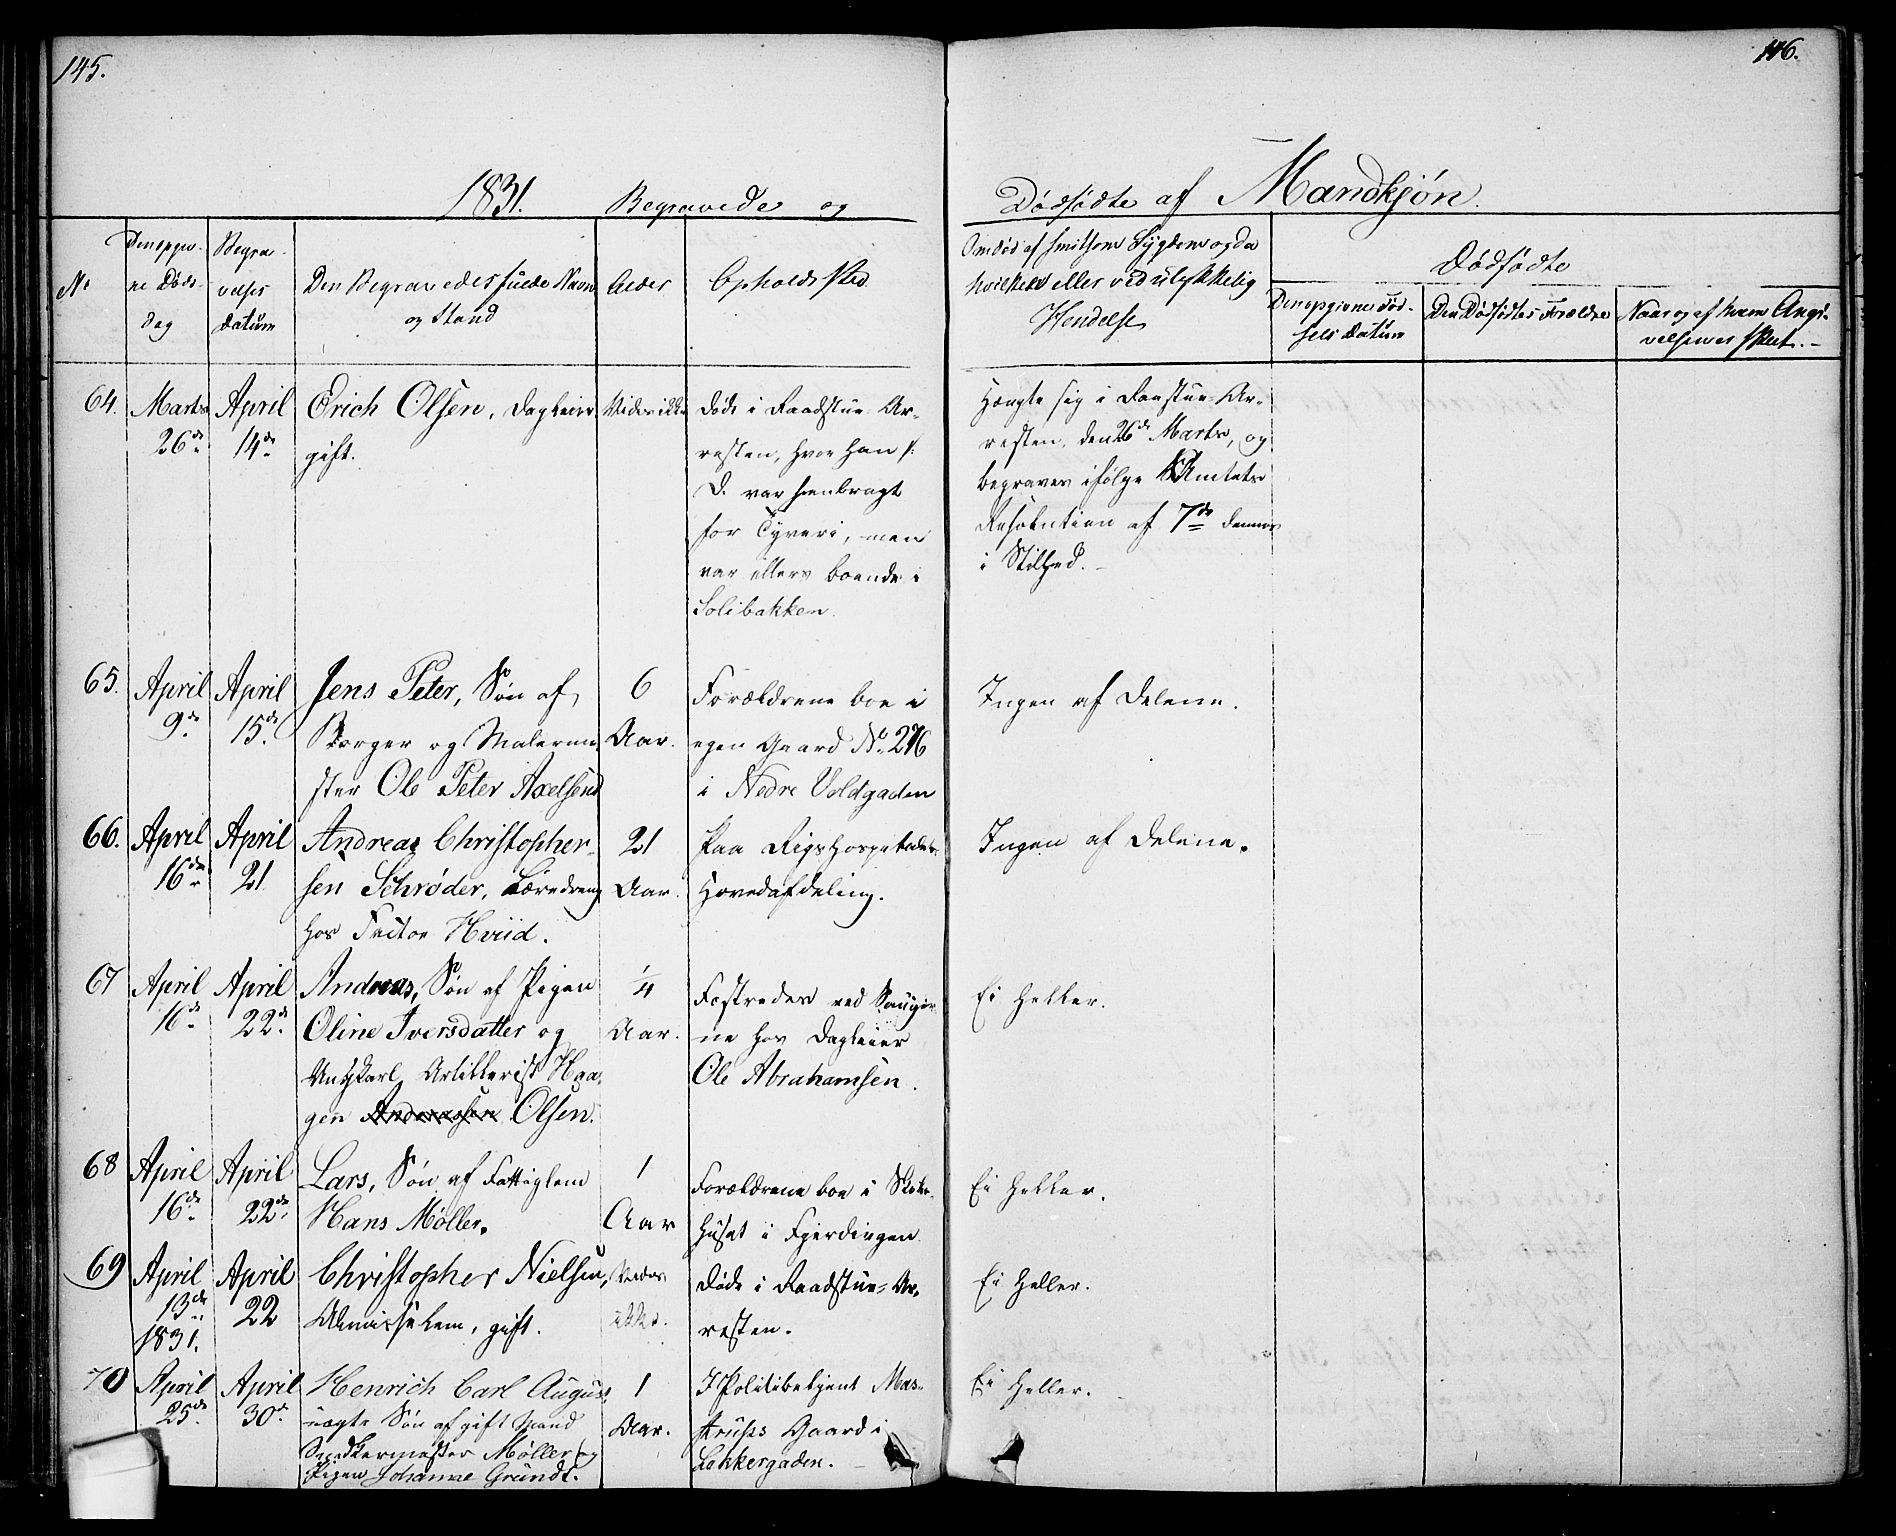 145.
146.
1831. Begravede og
Dødfødte af Mandkjøn.
No
Den opgiv-
ne Døds-
dag
Begra-
velses
Datum
Den Begravedes fulde Navn
og Stand
Alder
Opholds Sted
Om død af smitsom Sygdom og da
hvilken eller ved ulykkelig
Hendelse
Dødfødte
Den opgivne Fød-
sels Datum
Den Dødfødtes Forældre
Naar og af hvem Angi-
velsen er skeet.-
64.
Marts
26de
April
14de
Erich Olsen, Dagleier
gift.
Vides ikke
døde i Raadstue-Ar-
resten, hvor han p:
D. var henbragt
for Tyveri, men
var ellers boende i
Solibakken
Hængte sig i Raastue-Ar-
resten, den 26de Marts, og
begraves ifølge Amtets
Resolution af 7de dennes
i Stilhed.-
65.
April
9de
April
15de
Jens Peter, Søn af
Borger og Malerme-
ster Ole Peter Axelsen
6
Aar.
Forældrene boe i
egen Gaard No. 276
i Nedre Voldgaden
Ingen af Delene.
66.
April
16de
April
21
Andreas Christopher-
sen Schrøder, Læredreng
hos Factor Hviid.
21
Aar.
Paa Rigshospitalets
Hovedafdeling.
Ingen af Delene.
67
April
16de
April
22de
Andreas, Søn af Pigen
Oline Iversdatter og
Ungkarl Artillerist Haa-
gen Andreassen Olsen.
1/4
Aar.
Fostredes ved Saugene
ne hos Dagleier
Ole Abrahamsen.
Ei heller.
68
April
16de
April
22de
Lars, Søn af Fattiglem
Hans Møller.
1
Aar
Forældrene boe i
huset i Fjerdingen
Ei heller.
69
April
13de
1831.
April
22
Christopher Nielsen,
Almisselem, gift.
Vides
ikke.
døde i Raadstue-Ar-
resten.
Ei heller.
70
April
25de
April
30de
Henrich Carl August
uægte Søn af gift Mand
Snedkermester Møller og
Pigen Johanne Grundt.
1
Aar.
I Politibetjent Mas-
trups Gaard i
Lakkergaden.
Ei heller.